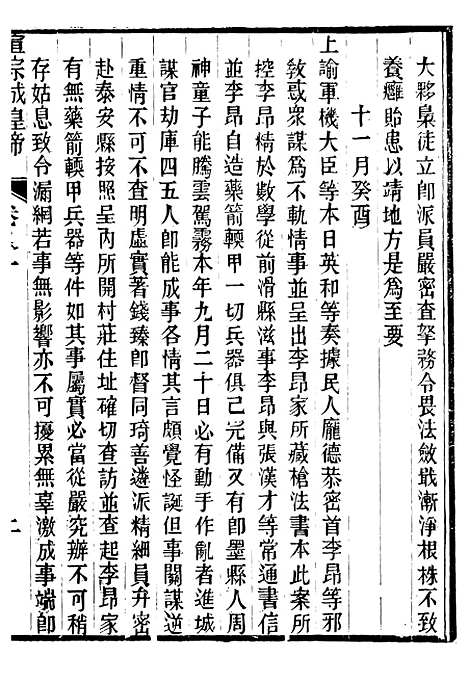 大夥梟徒立卽派員嚴密查拏務令畏法斂戢漸淨根株不致
養癰貽患以靖地方是爲至要
十一月癸酉
上諭軍機大臣等本日英和等奏據民人龐德恭密首李昂等邪
敎惑衆謀爲不軌情事並呈出李昂家所藏槍法書本此案所
控李昂精於數學從前滑縣滋事李昂與張漢才等常通書信
並李昂自造藥箭輭甲一切兵器俱已完備又有卽墨縣人周
神童子能騰雲駕霧本年九月二十日必有動手作亂者進城
謀官劫庫四五人卽能成事各情其言頗覺怪誕但事關謀逆
重情不可不查明虛實著錢臻卽督同琦善遴派精細員弁密
赴泰安縣按照呈內所開村莊住址確切查訪並查起李昂家
有無藥箭輭甲兵器等件如其事屬實必當從嚴究辦不可稍
存姑息致令漏網若事無影響亦不可擾累無辜激成事端卽
宣宗成皇帝 卷之一 二